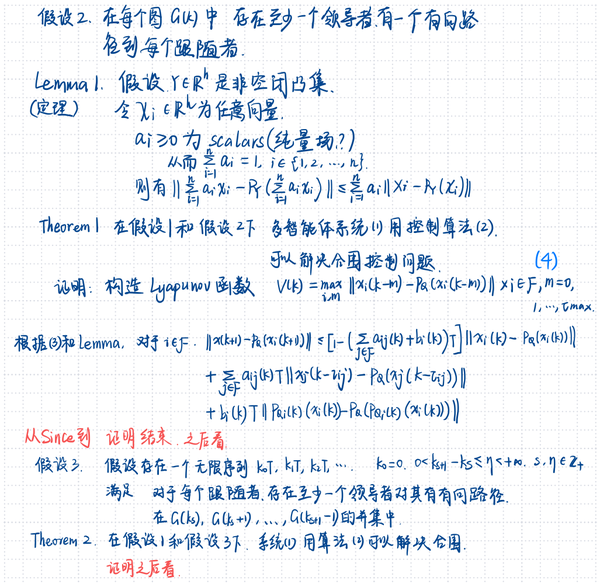 假设2. 在每个图 G(k) 中 存在至少一个领导者.有一个有向路
径到每个跟随者.
Lemma 1. 假设 Y∈Rʰ 是非空闭凸集.
(定理) 令 χi ∈ Rʰ 为任意向量.
ai≥0 为 scalars(纯量场?)
从而 Σ_{i=1}^{n} ai = 1, i∈{1,2,…,n}.
则有 ||Σ_{i=1}^{n} aixi - Pr(Σ_{i=1}^{n} aixi)|| ≤ Σ_{i=1}^{n} ai||Xi - Pr(xi)||
Theorem 1 在假设1和假设2下 多智能体系统(1) 用控制算法(2).
可以解决合围控制问题. (4)
证明: 构造 Lyapunov 函数 V(k) = max_{i,m} ||xi(k-m) - PQ(xi(k-m))|| ∀i∈F, m=0,
1, …, τmax.
根据(3)和Lemma. 对于 i∈F. ||x(k+1) - PQ(xi(k+1))|| ≤ [1-(Σ_{j∈F} aij(k)+bi(k))T] ||xi(k) - PQ(xi(k))||
+ Σ_{j∈F} aij(k)T||xj(k-τij) - PQ(xj(k-τij))||
+ bi(k)T||PΩi(k)(xi(k)) - PQ(PΩi(k)(xi(k)))||
从Since到 证明结束. 之后看
假设3. 假设存在一个无限序列 k0T, k1T, k2T, … k0=0. 0<ks+1-ks≤η<+∞. s,η∈Z+
满足 对于每个跟随者.存在至少一个领导者对其有有向路径.
在 G(ks), G(ks+1), …, G(ks+1-1)的并集中.
Theorem 2. 在假设1和假设3下. 系统(1) 用算法(2)可以解决合围.
证明之后看.